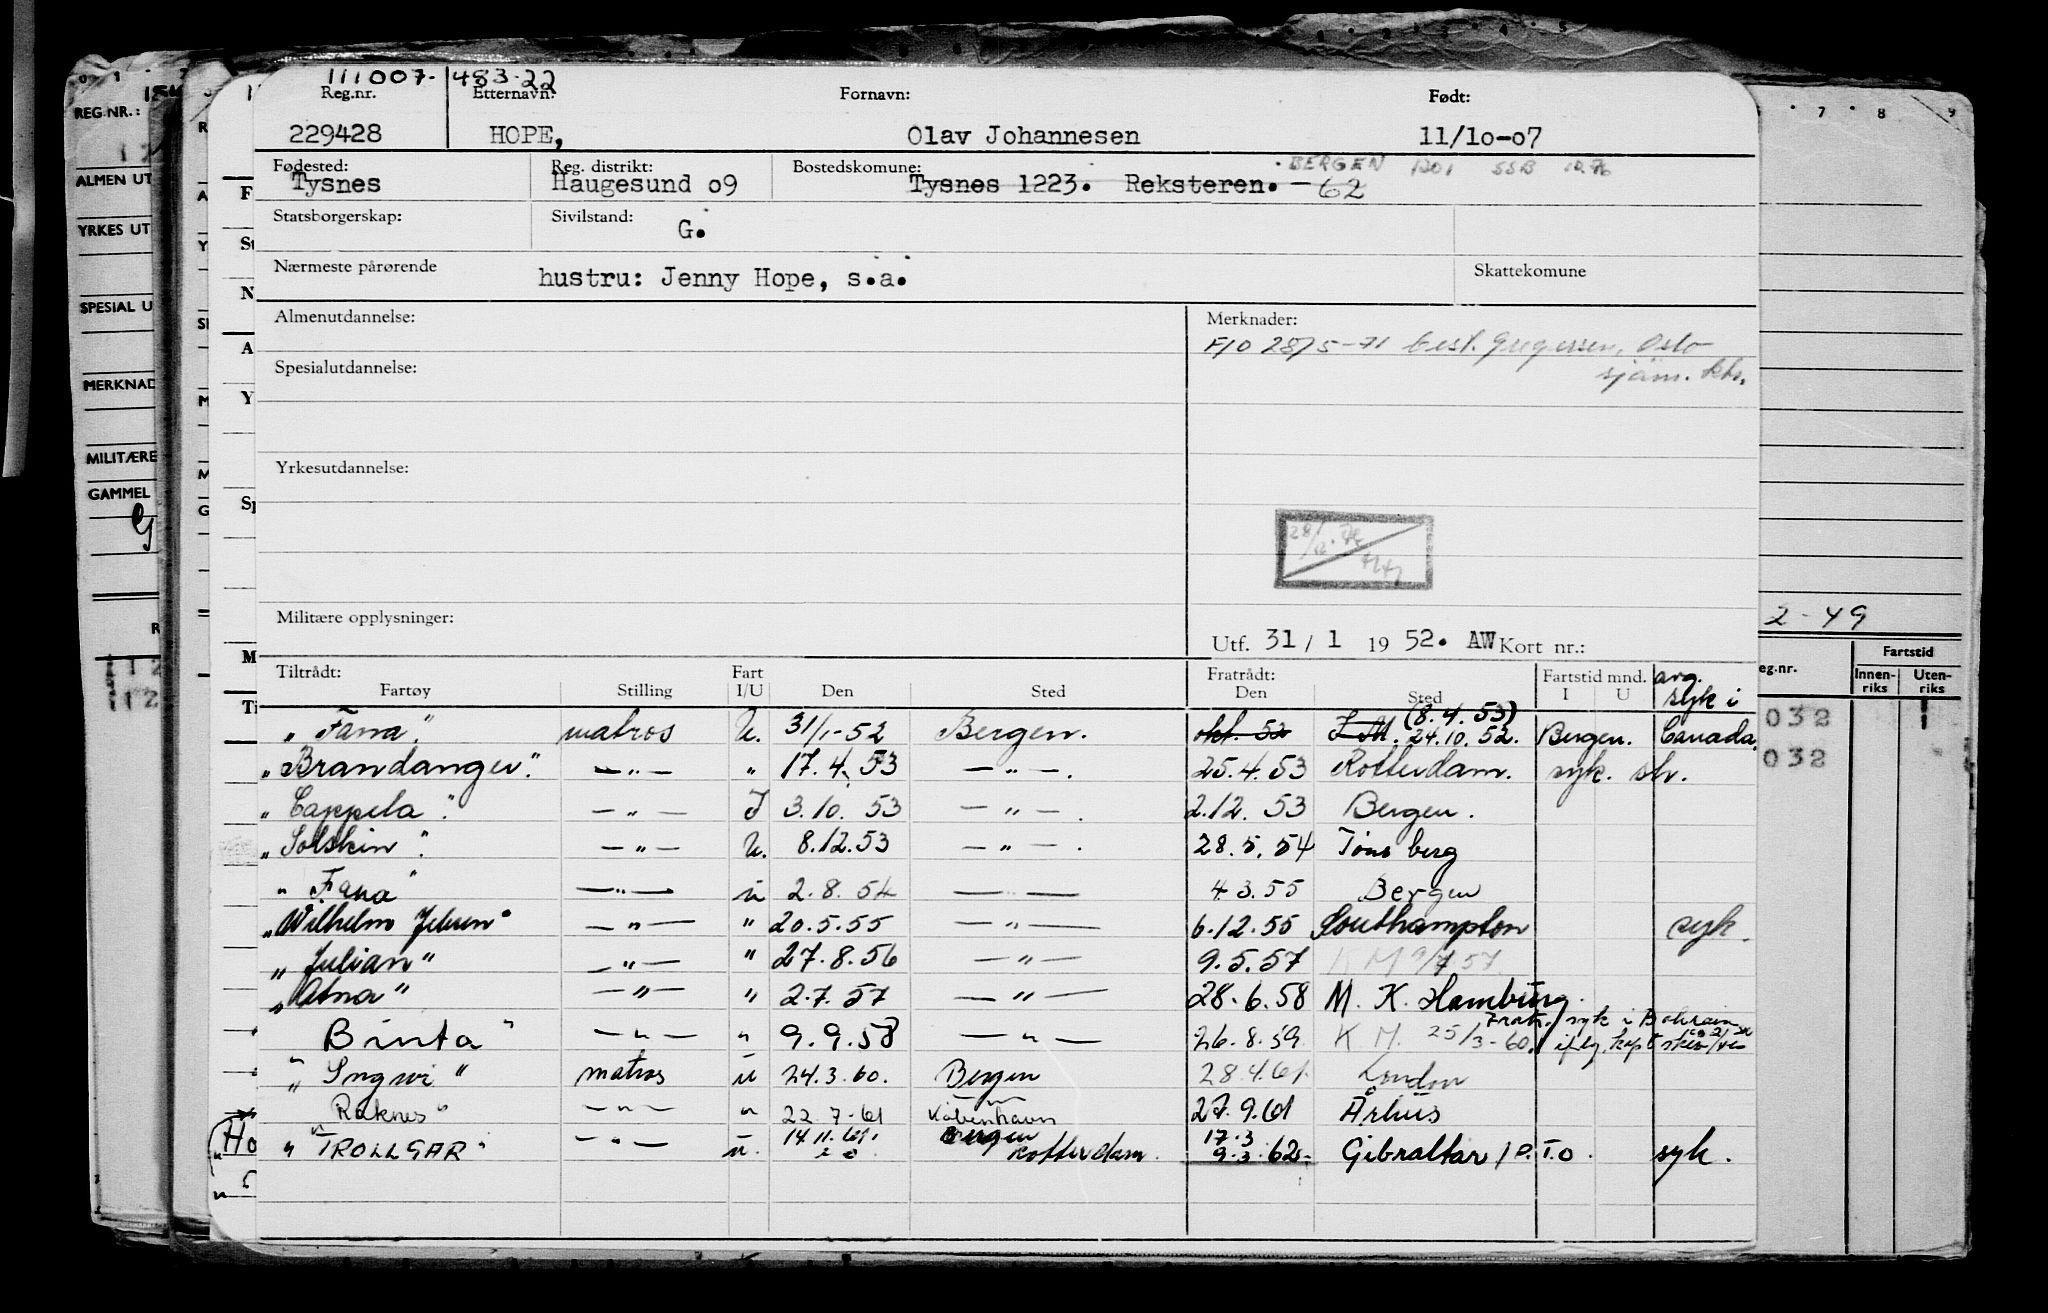 111007- 483-22
Reg.nr. Etternavn: Fornavn: Født:
229428 HOPE, Olav Johannesen 11/1o-o7
Fødested: Reg. distrikt: Bostedskomune: BERGEN 1301 SSB 12.76
Tysnes Haugesund o9 Tysnes 1223. Reksteren. - 62
Statsborgerskap: Sivilstand:
G.
Nærmeste pårørende hustru: Jenny Hope, s.a. Skattekomune
Almenutdannelse: Merknader:
F/O 28/5-71 best. Gregersen, Oslo
Spesialutdannelse: sjøm. ktr.
Yrkesutdannelse:
Militære opplysninger:
Utf. 31/1 1952. AW Kort nr.:
Tiltrådt: Fart Fratrådt: Fartstid mnd. avg.
Fartøy Stilling I/U Den Sted Den Sted I U syk i
(8.4.53)
„Fana" matros U. 31/1-52 Bergen. okt. 52 24.10.52. Bergen. Canada.
„Brandanger". —"— " 17.4.53 —"—. 25.4.53 Rotterdam. syk.
„Cappela". —"— I 3.10.53 —"—. 2.12.53 Bergen.
„Solskin". —"— U. 8.12.53 —"—. 28.5.54 Tønsberg
„Fana" —"— u 2.8.54 —"— 4.3.55 Bergen
„Wilhelm Jebsen" —"— " 20.5.55 —"— 6.12.55 Southampton syk.
„Julian" —"— " 27.8.56 —"— 9.5.57 K M 9/7 57.
„Atna" —"— " 2.7.57 —"— 28.6.58 M. K. Hamburg.
Fratr. syk i Bahrain
Binta" —"— " 9.9.58 —"— 26.8.59 K. M. 25/3-60. iflg. kapt skriv
„Ingwi" matros u 24.3.60. Bergen 28.4.61. London
Raknes" —"— " 22.7-61 København 27.9.61 Århus
14.11.61. Bergen 17.3
„TROLLGAR" —"— u. Rotterdam. 9.3.62- Gibraltar / P.T.O. syk.
REG.NR.:
ALMEN UT
YRKES UT
SPESIAL U
MERKNAD
MILITÆRE
GAMMEL
Ho
2-49
eg.nr. Fartstid
Innen-riks Uten-riks
032
032